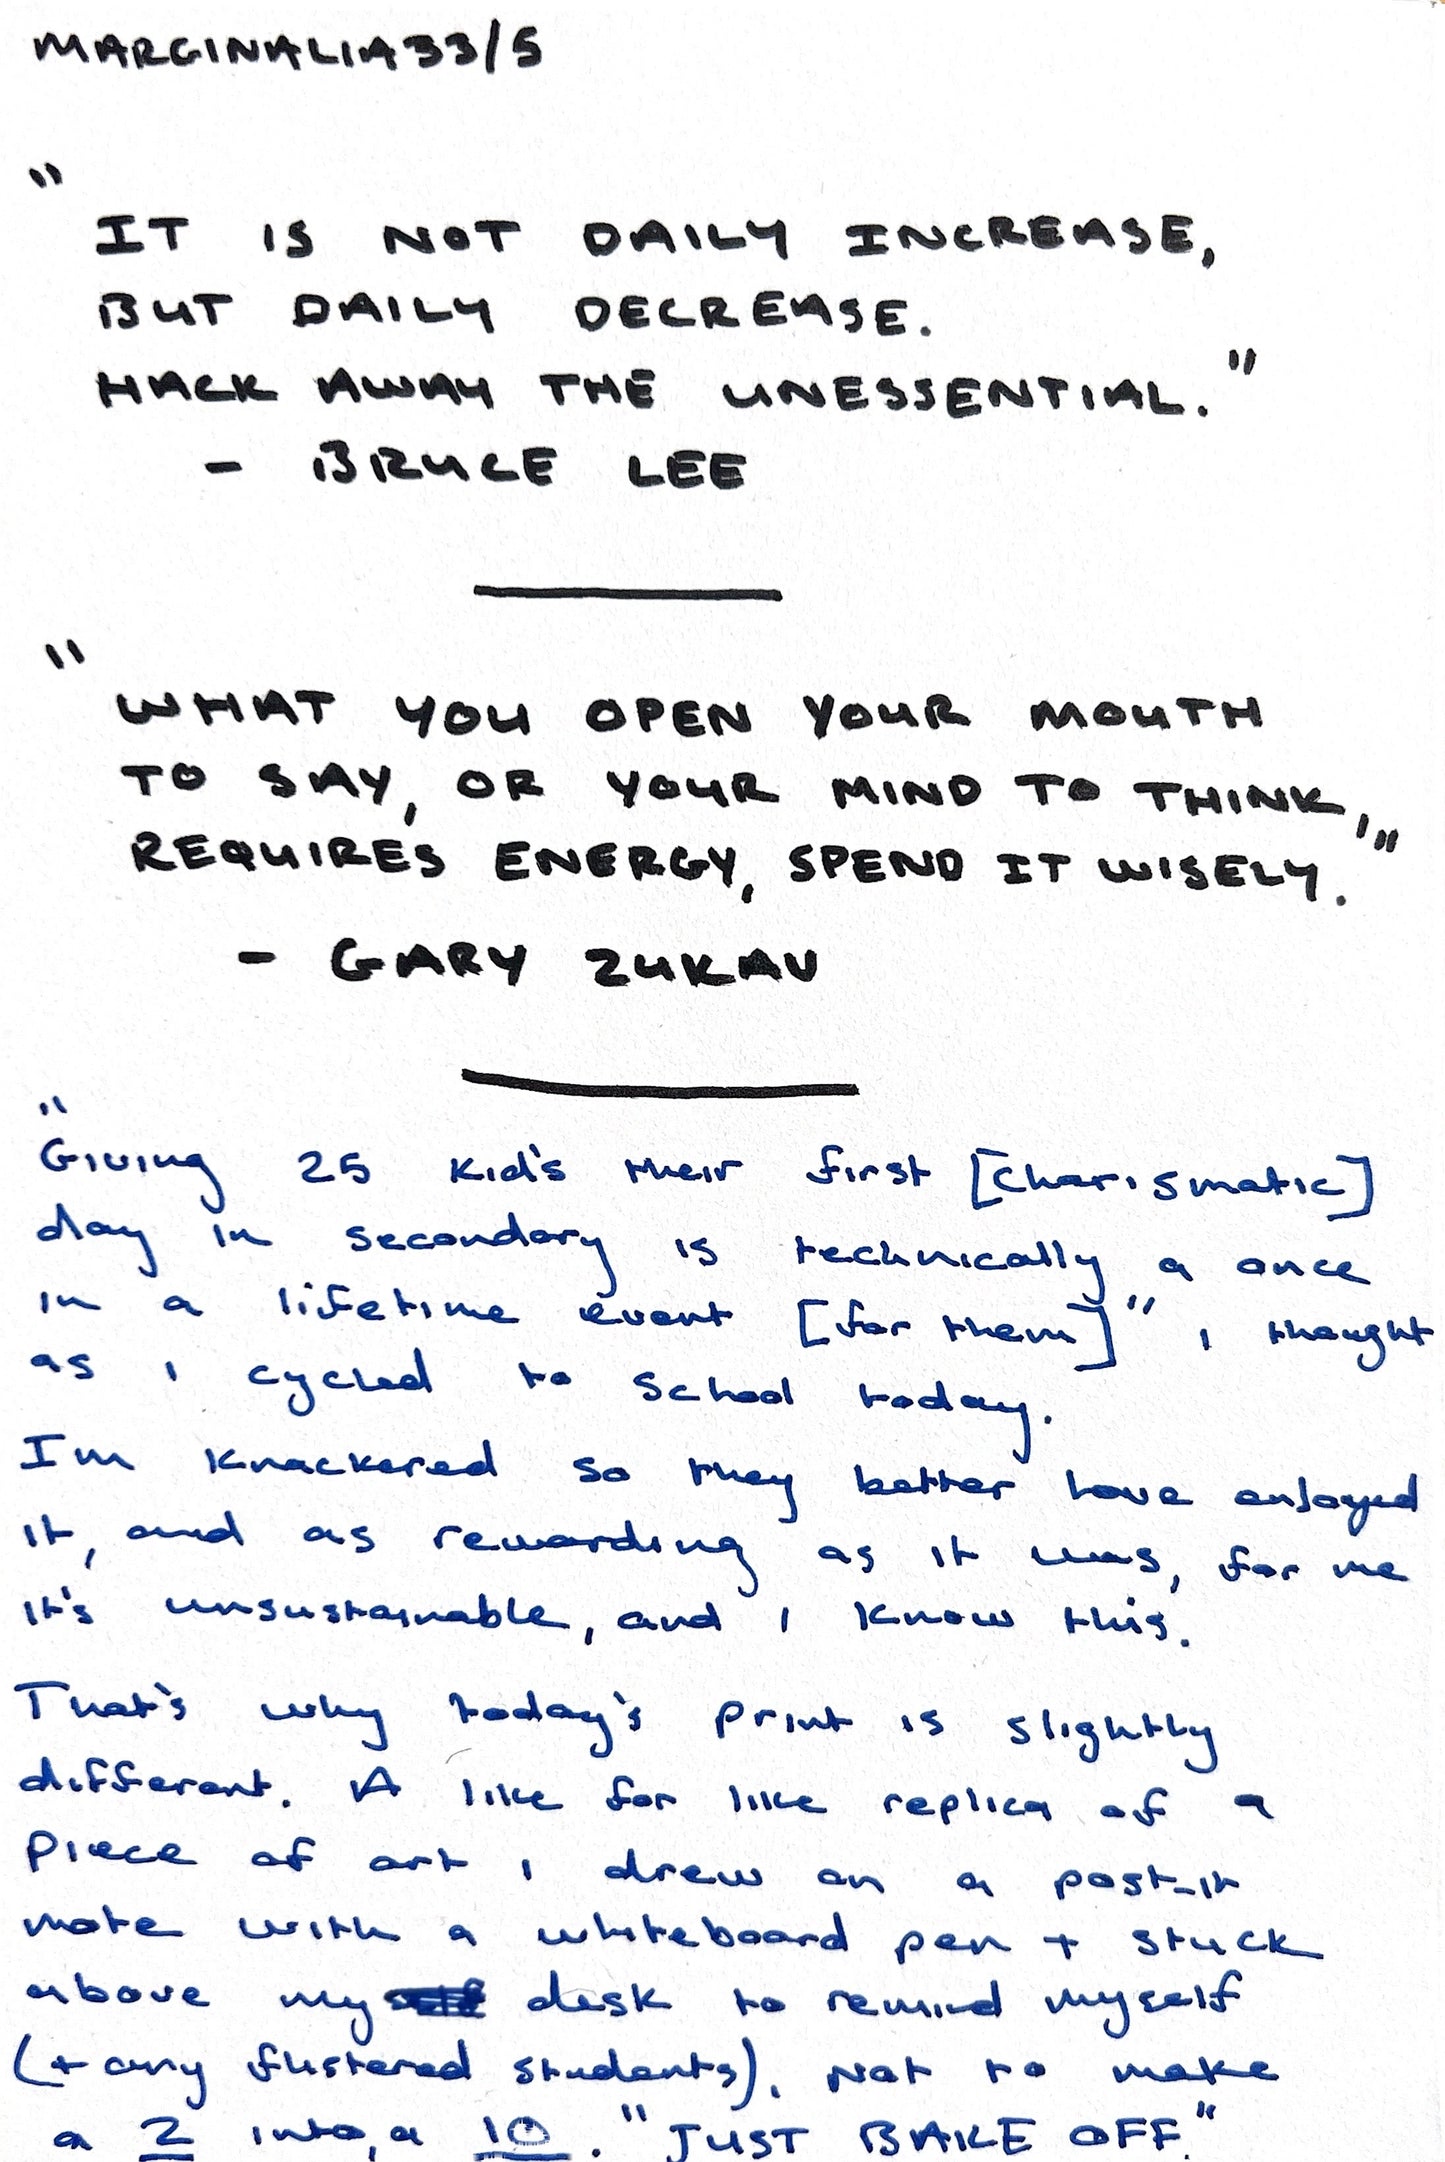 MARGINALIA33/5
"
IT IS NOT DAILY INCREASE,
BUT DAILY DECREASE.
HACK AWAY THE UNESSENTIAL."
- BRUCE LEE
"
WHAT YOU OPEN YOUR MOUTH
TO SAY, OR YOUR MIND TO THINK,
REQUIRES ENERGY, SPEND IT WISELY."
- GARY ZUKAV
"
Giving 25 kid's their first [charismatic]
day in secondary is technically a once
in a lifetime event [for them]", i thought
as i cycled to school today.
I'm knackered so they better have enjoyed
it, and as rewarding as it was, for me
it's unsustainable, and i know this.
That's why today's print is slightly
different. A like for like replica of a
piece of art i drew on a post-it
note with a whiteboard pen + stuck
above my desk to remind myself
(+ any flustered students). Not to make
a 2 into, a 10. "JUST BAKE OFF."